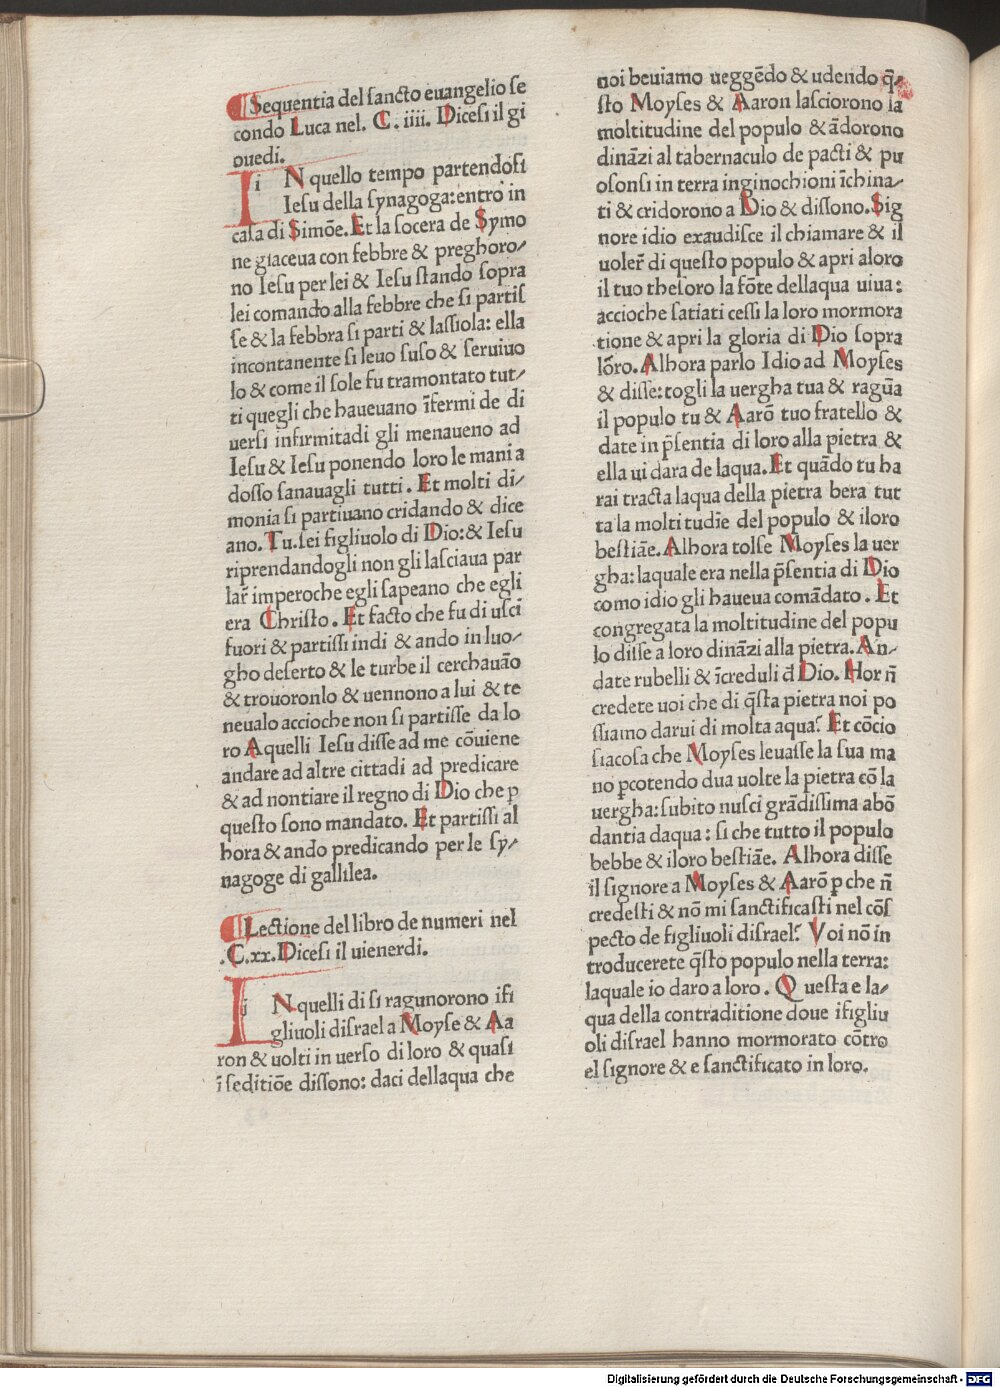 Sequentia del sancto euangelio se
condo Luca nel. C. iiii. Dicesi il gi
ouedi.
IN quello tempo partendosi
Iesu della synagoga: entro in
casa di Simōe. Et la socera de Symo
ne giaceua con febbre & preghoro/
no Iesu per lei & Iesu stando sopra
lei comando alla febbre che si partis
se & la febbra si parti & lassiola: ella
incontanente si leuo suso & seruiuo
lo & come il sole fu tramontato tut/
ti quegli che haueuano īfermi de di
uersi infirmitadi gli menaueno ad
Iesu & Iesu ponendo loro le mani a
dosso sanauagli tutti. Et molti di/
monia si partiuano cridando & dice
ano. Tu. sei figliuolo di Dio: & Iesu
riprendandogli non gli lasciaua par
lar̄ imperoche egli sapeano che egli
era Christo. Et facto che fu di usci
fuori & partissi indi & ando in luo/
gho deserto & le turbe il cerchauāo
& trouoronlo & uennono a lui & te
neualo accioche non si partisse da lo
ro Aquelli Iesu disse ad me cōuiene
andare ad altre cittadi ad predicare
& ad nontiare il regno di Dio che ꝑ
questo sono mandato. Et partissi al
hora & ando predicando per le sy/
nagoge di gallilea.
Lectione del libro de numeri nel
.C.xx. Dicesi il uienerdi.
IN quelli di si ragunorono ifi
gliuoli disrael a Moyse & Aa
ron & uolti in uerso di loro & quasi
ī seditiōe dissono: daci dellaqua che
noi beuiamo ueggēdo & udendo q̄/
sto Moyses & Aaron lasciorono la
moltitudine del populo & ādorono
dināzi al tabernaculo de pacti & pu
osonsi in terra inginochioni īchina/
ti & cridorono a Dio & dissono. Sig
nore idio exaudisce il chiamare & il
uoler̄ di questo populo & apri aloro
il tuo thesoro la fōte dellaqua uiua:
accioche satiati cessi la loro mormora
tione & apri la gloria di Dio sopra
lōro. Alhora parlo Idio ad Moyses
& disse: togli la uergha tua & raguā
il populo tu & Aarō tuo fratello &
date in p̄sentia di loro alla pietra &
ella ui dara de laqua. Et quādo tu ha
rai tracta laqua della pietra bera tut
ta la molti tudīe del populo & iloro
bestiāe. Alhora tolse Moyses la uer
gha: laquale era nella p̄sentia di Dio
como idio gli haueua comādato. Et
congregata la moltitudine del popu
lo disse a loro dināzi alla pietra. An/
date rubelli & īcreduli đ Dio. Hor n̄
credete uoi che di q̄sta pietra noi po
ssiamo darui di molta aqua? Et cōcio
siacosa che Moyses leuasse la sua ma
no ꝑcotendo dua uolte la pietra cō la
uergha: subito nusci grādissima abō
dantia daqua: si che tutto il populo
bebbe & iloro bestiāe. Alhora disse
il signore a Moyses & Aarō ꝑ che n̄
credesti & nō mi sanctificasti nel cōs
pecto de figliuoli disrael? Voi nō in
troducerete q̄sto populo nella terra:
laquale io daro a loro. Questa e la/
qua della contraditione doue ifigliu
oli disrael hanno mormorato cōtro
el signore & e sanctificato in loro.
Digitalisierung gefördert durch die Deutsche Forschungsgemeinschaft - DFG